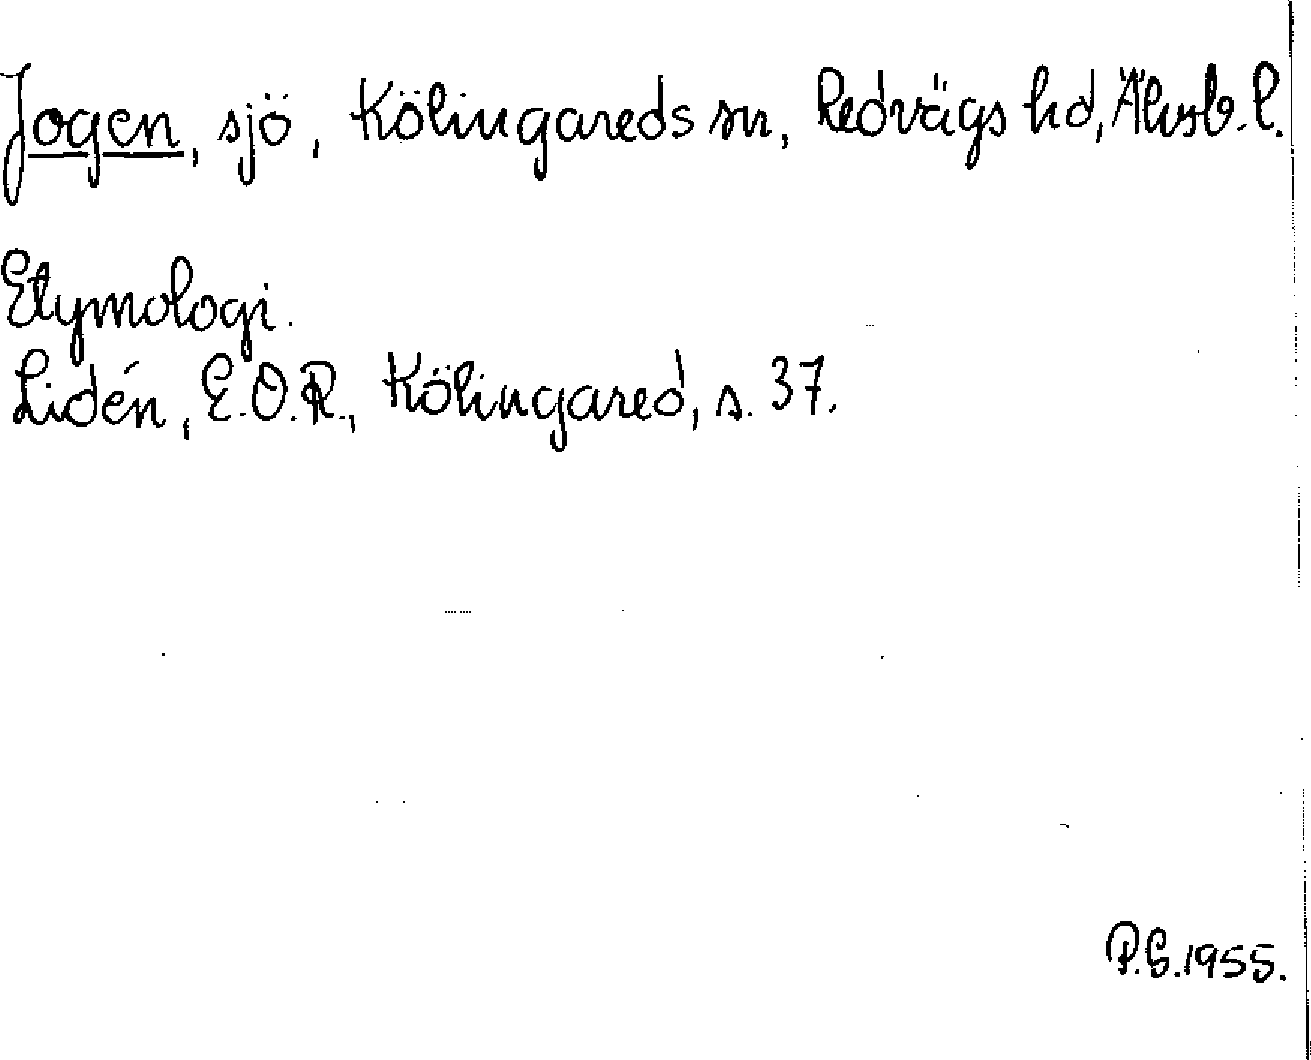 Jogen, sjö, Kölingareds sn, Redvägs hd, Älvsb. l.
Etymologi.
Lidén, E.O.R., Kölingared, s. 37.
P.G. 1955.